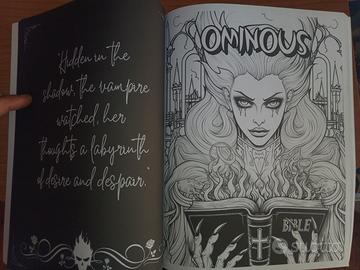 "Hidden in the
shadows, the vampire
watched, her
thoughts a labyrinth
of desire and despair."
OMINOUS
BIBLE